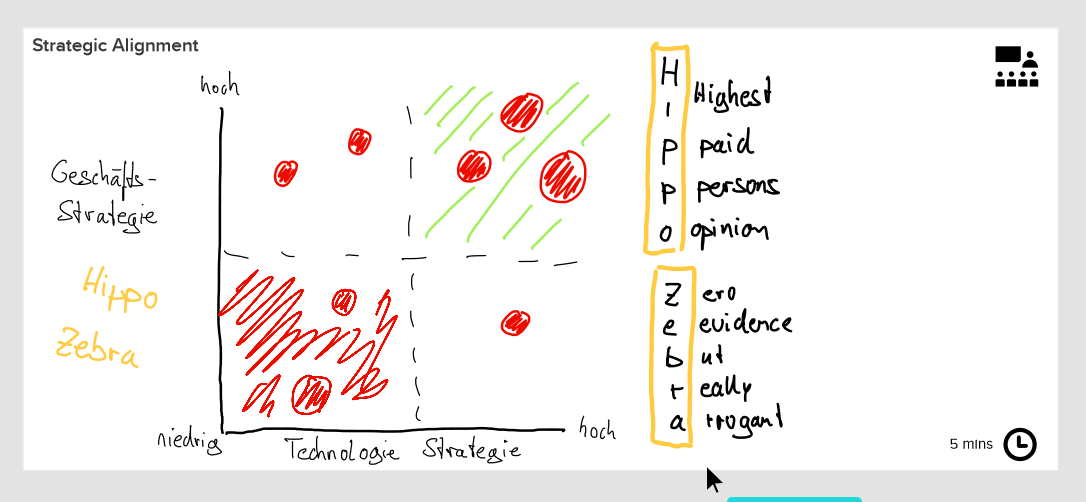 Strategic Alignment
hoch
Geschäfts-
Strategie
Hippo
Zebra
niedrig
Technologie Strategie
hoch
H
I Highest
P paid
P persons
o opinion
Z ero
e evidence
b ut
r eally
a rrogant
5 mins